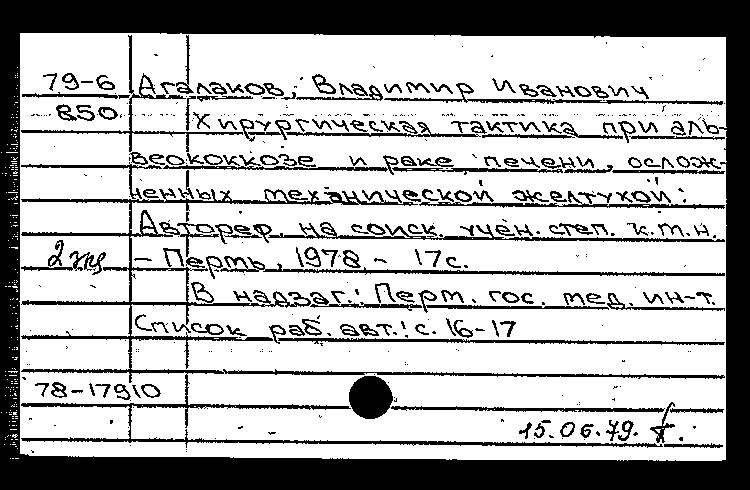 79-6 Агалаков, Владимир Иванович
850 Хирургическая тактика при аль-
веококкозе и раке печени, ослож-
ненных механической желтухой:
Автореф. на соиск. учен. степ. к.м.н.
2 экз – Пермь, 1978. – 17с.
В надзаг.: Перм. гос. мед. ин-т.
Список раб. авт.: с. 16-17
78-17910
15.06.79.